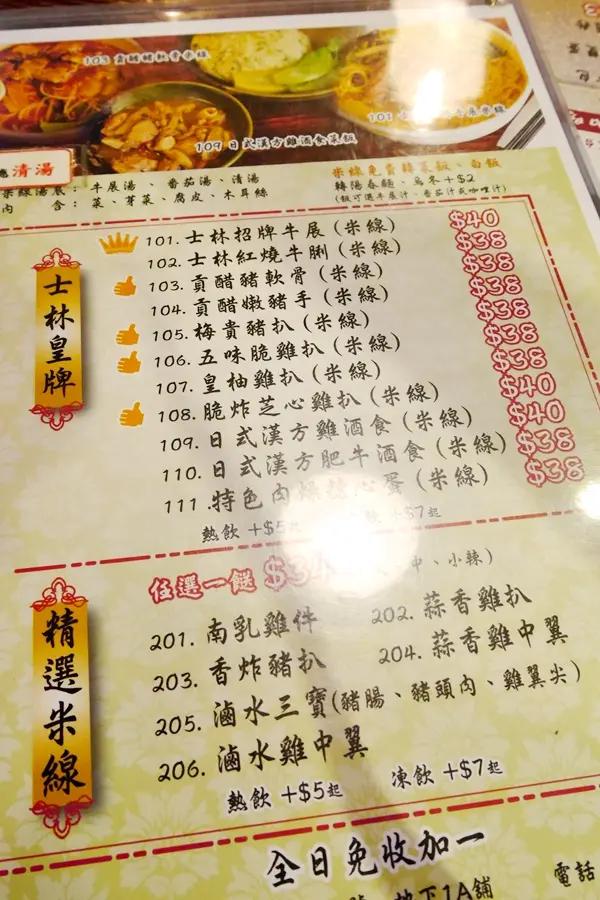 103 貢醋豬軟骨米線
109 日式漢方雞酒食菜飯
清湯
米線湯底：牛展湯、番茄湯、清湯
內 含：菜、芽菜、腐皮、木耳絲
米線免費轉菜飯、白飯
轉湯春麵、烏冬+$2
(飯可選牛展汁、番茄汁或咖哩汁)
士林皇牌
101. 士林招牌牛展 (米線) $40
102. 士林紅燒牛脷 (米線) $38
103. 貢醋豬軟骨 (米線) $38
104. 貢醋嫩豬手 (米線) $38
105. 梅貴豬扒 (米線) $38
106. 五味脆雞扒 (米線) $38
107. 皇柚雞扒 (米線) $38
108. 脆炸芝心雞扒 (米線) $40
109. 日式漢方雞酒食 (米線) $40
110. 日式漢方肥牛酒食 (米線) $38
111. 特色肉燥糖心蛋 (米線) $38
熱飲 +$5起 +$7起
精選米線
任選一餸 中、小辣)
201. 南乳雞件 202. 蒜香雞扒
203. 香炸豬扒 204. 蒜香雞中翼
205. 滷水三寶(豬腸、豬頭肉、雞翼尖)
206. 滷水雞中翼
熱飲 +$5起 凍飲 +$7起
全日免收加一
地下1A舖 電話